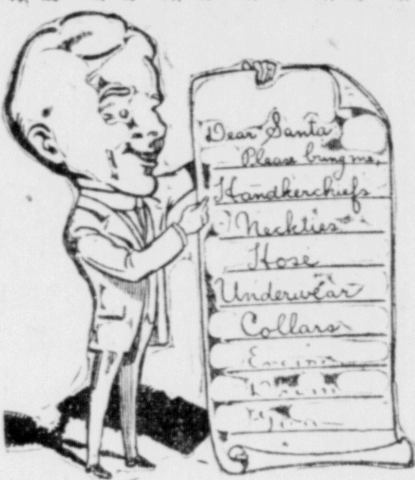 Dear Santa
Please bring me,
Handkerchiefs
Neckties
Hose
Underwear
Collars
Engine
Drum
Gun